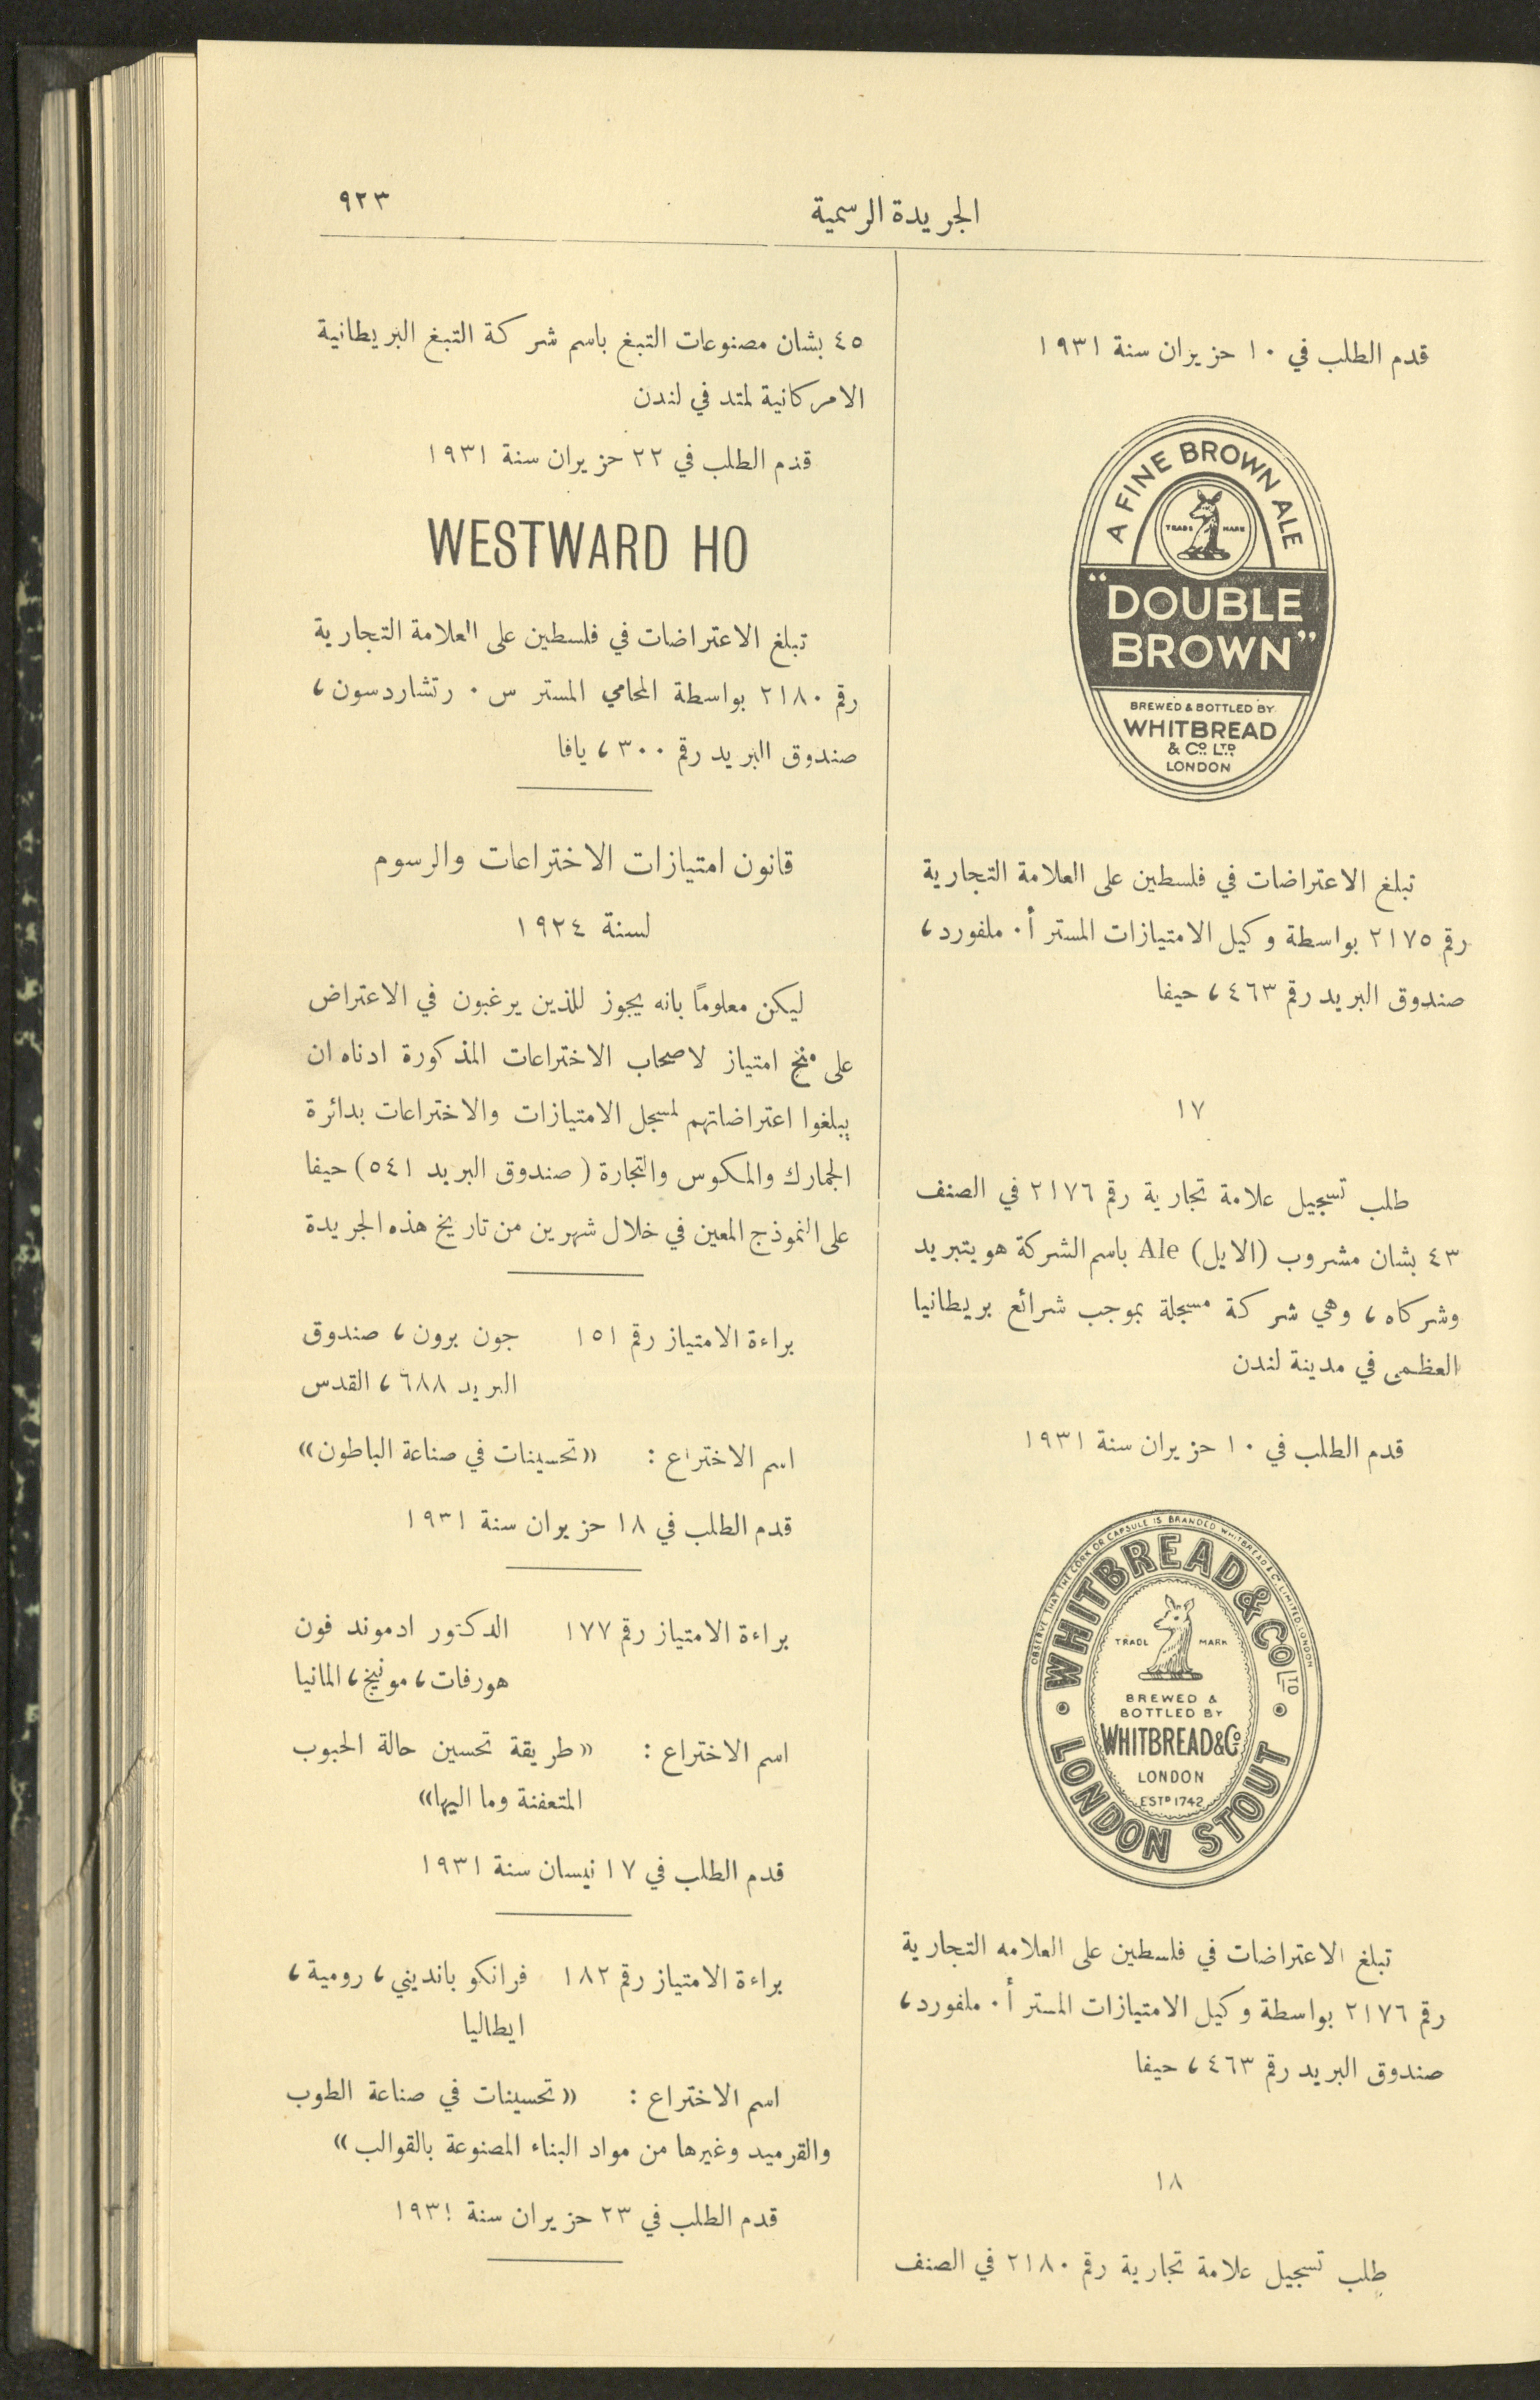 الجريدة الرسمية
٩٢٣
قدم الطلب في ١٠ حزيران سنة ١٩٣١
A FINE BROWN ALE
TRADE MARK
"DOUBLE
BROWN"
BREWED & BOTTLED BY
WHITBREAD
& CO. LTD.
LONDON
تبلغ الاعتراضات في فلسطين على العلامة التجارية
رقم ٢١٧٥ بواسطة وكيل الامتيازات المستر أ. ملفورد،
صندوق البريد رقم ٤٦٣، حيفا
١٧
طلب تسجيل علامة تجارية رقم ٢١٧٦ في الصنف
٤٣ بشان مشروب (الايل) Ale باسم الشركة هويتبريد
وشركاه، وهي شركة مسجلة بموجب شرائع بريطانيا
العظمى في مدينة لندن
قدم الطلب في ١٠ حزيران سنة ١٩٣١
OBSERVE THAT THE CORK OR CAPSULE IS BRANDED WHITBREAD & CO. LIMITED. LONDON
WHITBREAD & CO LTD
TRADE MARK
BREWED &
BOTTLED BY
WHITBREAD & CO.
LONDON
ESTD 1742
LONDON STOUT
تبلغ الاعتراضات في فلسطين على العلامه التجارية
رقم ٢١٧٦ بواسطة وكيل الامتيازات المستر أ. ملفورد،
صندوق البريد رقم ٤٦٣، حيفا
١٨
طلب تسجيل علامة تجارية رقم ٢١٨٠ في الصنف
٤٥ بشان مصنوعات التبغ باسم شركة التبغ البريطانية
الامركانية لمتد في لندن
قدم الطلب في ٢٢ حزيران سنة ١٩٣١
WESTWARD HO
تبلغ الاعتراضات في فلسطين على العلامة التجارية
رقم ٢١٨٠ بواسطة المحامي المستر س. رتشاردسون،
صندوق البريد رقم ٣٠٠، يافا
قانون امتيازات الاختراعات والرسوم
لسنة ١٩٢٤
ليكن معلومًا بانه يجوز للذين يرغبون في الاعتراض
على منح امتياز لاصحاب الاختراعات المذكورة ادناه ان
يبلغوا اعتراضاتهم لمسجل الامتيازات والاختراعات بدائرة
الجمارك والمكوس والتجارة (صندوق البريد ٥٤١) حيفا
على النموذج المعين في خلال شهرين من تاريخ هذه الجريدة
براءة الامتياز رقم ١٥١ جون برون، صندوق
البريد ٦٨٨، القدس
اسم الاختراع: «تحسينات في صناعة الباطون»
قدم الطلب في ١٨ حزيران سنة ١٩٣١
براءة الامتياز رقم ١٧٧ الدكتور ادموند فون
هورفات، مونيخ، المانيا
اسم الاختراع: «طريقة تحسين حالة الحبوب
المتعفنة وما اليها»
قدم الطلب في ١٧ نيسان سنة ١٩٣١
براءة الامتياز رقم ١٨٢ فرانكو بانديني، رومية،
ايطاليا
اسم الاختراع: «تحسينات في صناعة الطوب
والقرميد وغيرها من مواد البناء المصنوعة بالقوالب»
قدم الطلب في ٢٣ حزيران سنة ١٩٣١